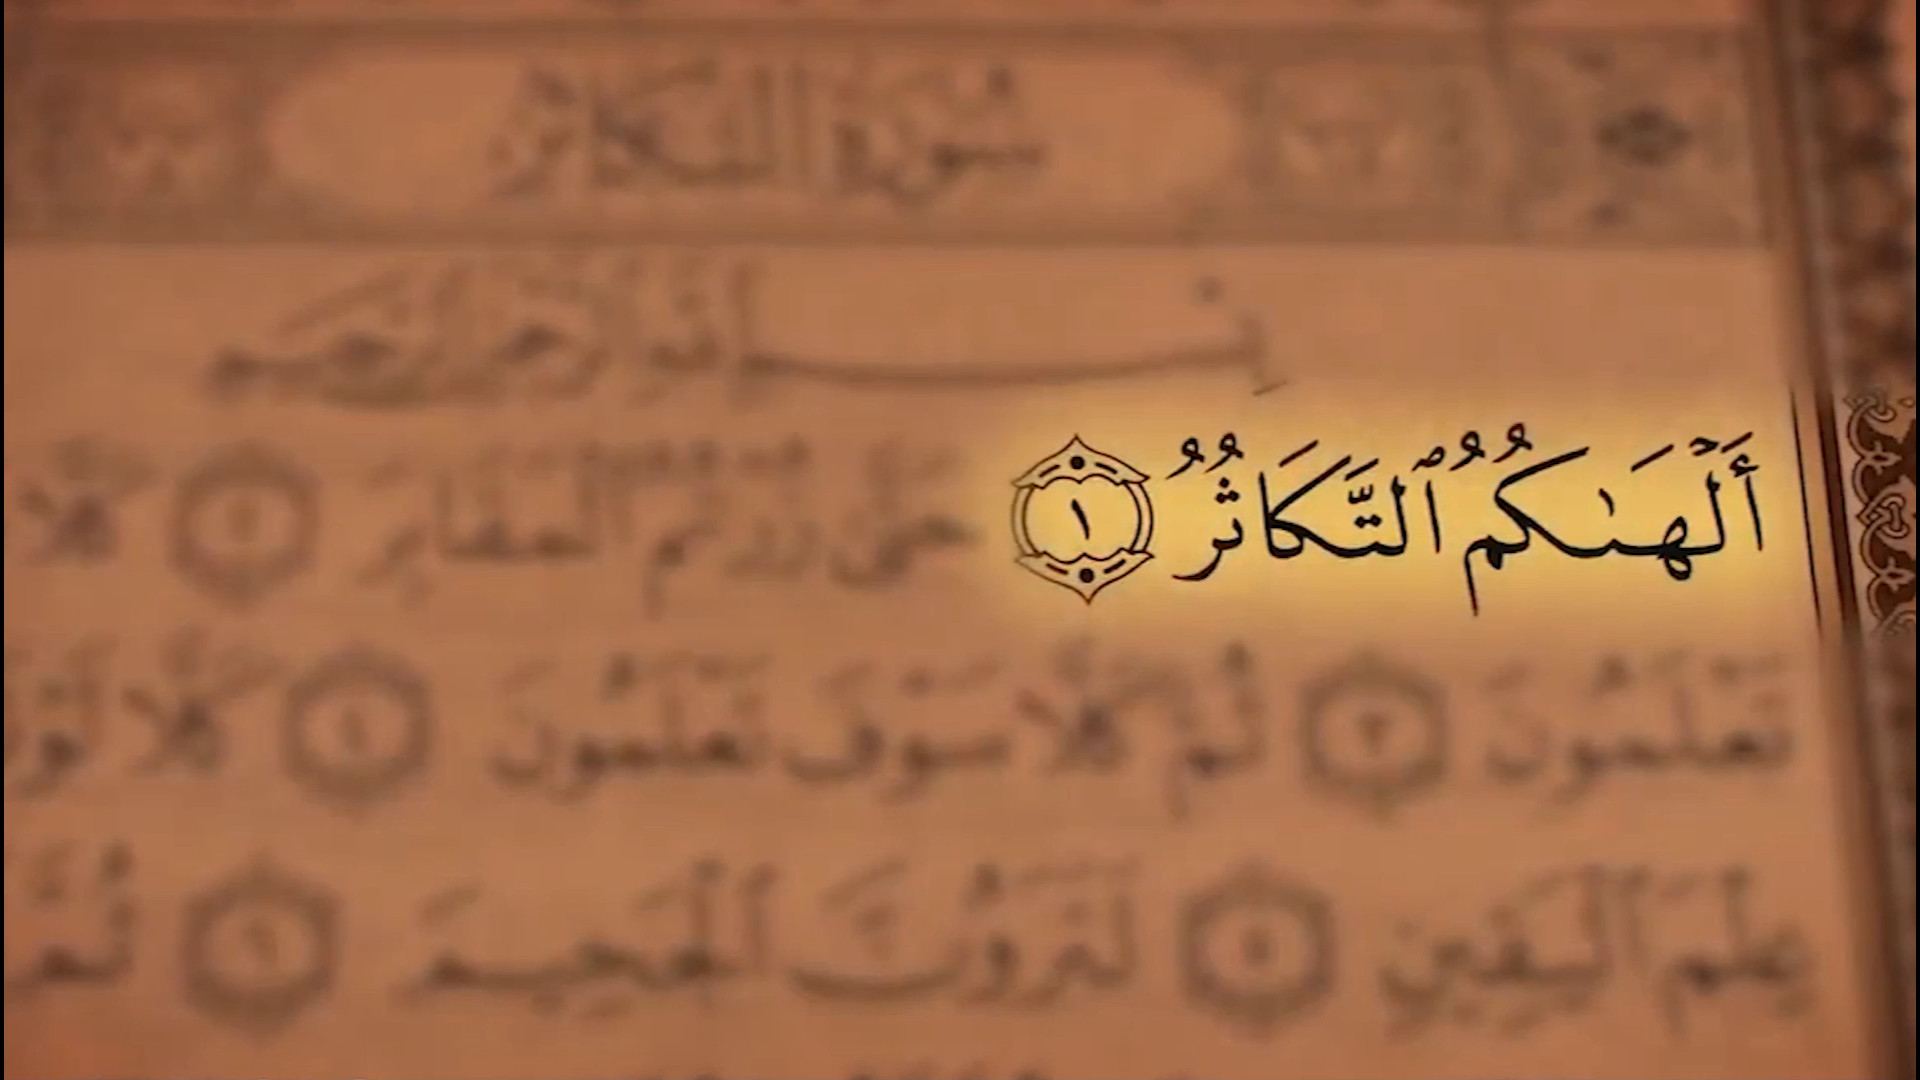 سورة التكاثر
بِسْمِ ٱللَّهِ ٱلرَّحْمَٰنِ ٱلرَّحِيمِ
أَلْهَىٰكُمُ ٱلتَّكَاثُرُ ١ حَتَّىٰ زُرْتُمُ ٱلْمَقَابِرَ ٢ كَلَّا
تَعْلَمُونَ ٣ ثُمَّ كَلَّا سَوْفَ تَعْلَمُونَ ٤ كَلَّا لَوْ
عِلْمَ ٱلْيَقِينِ ٥ لَتَرَوُنَّ ٱلْجَحِيمَ ٦ ثُمَّ